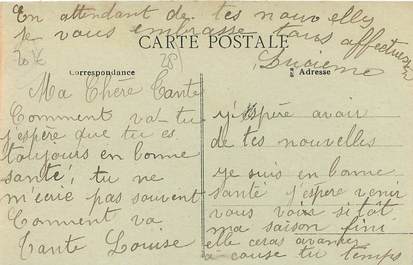 En attendant de tes nouvelles
je vous embrasse tous affectueusement
Lucienne
CARTE POSTALE
Correspondance
Adresse
28
Ma Chère Tante
Comment va-tu
j'espère que tu es
toujours en bonne
santé, tu ne
m'écrie pas souvent
Comment va
Tante Louise
j'éspère avoir
de tes nouvelles
je suis en bonne
santé j'espere venir
vous voir si tôt
ma saison fini
elle ceras avancer
a cause du temps